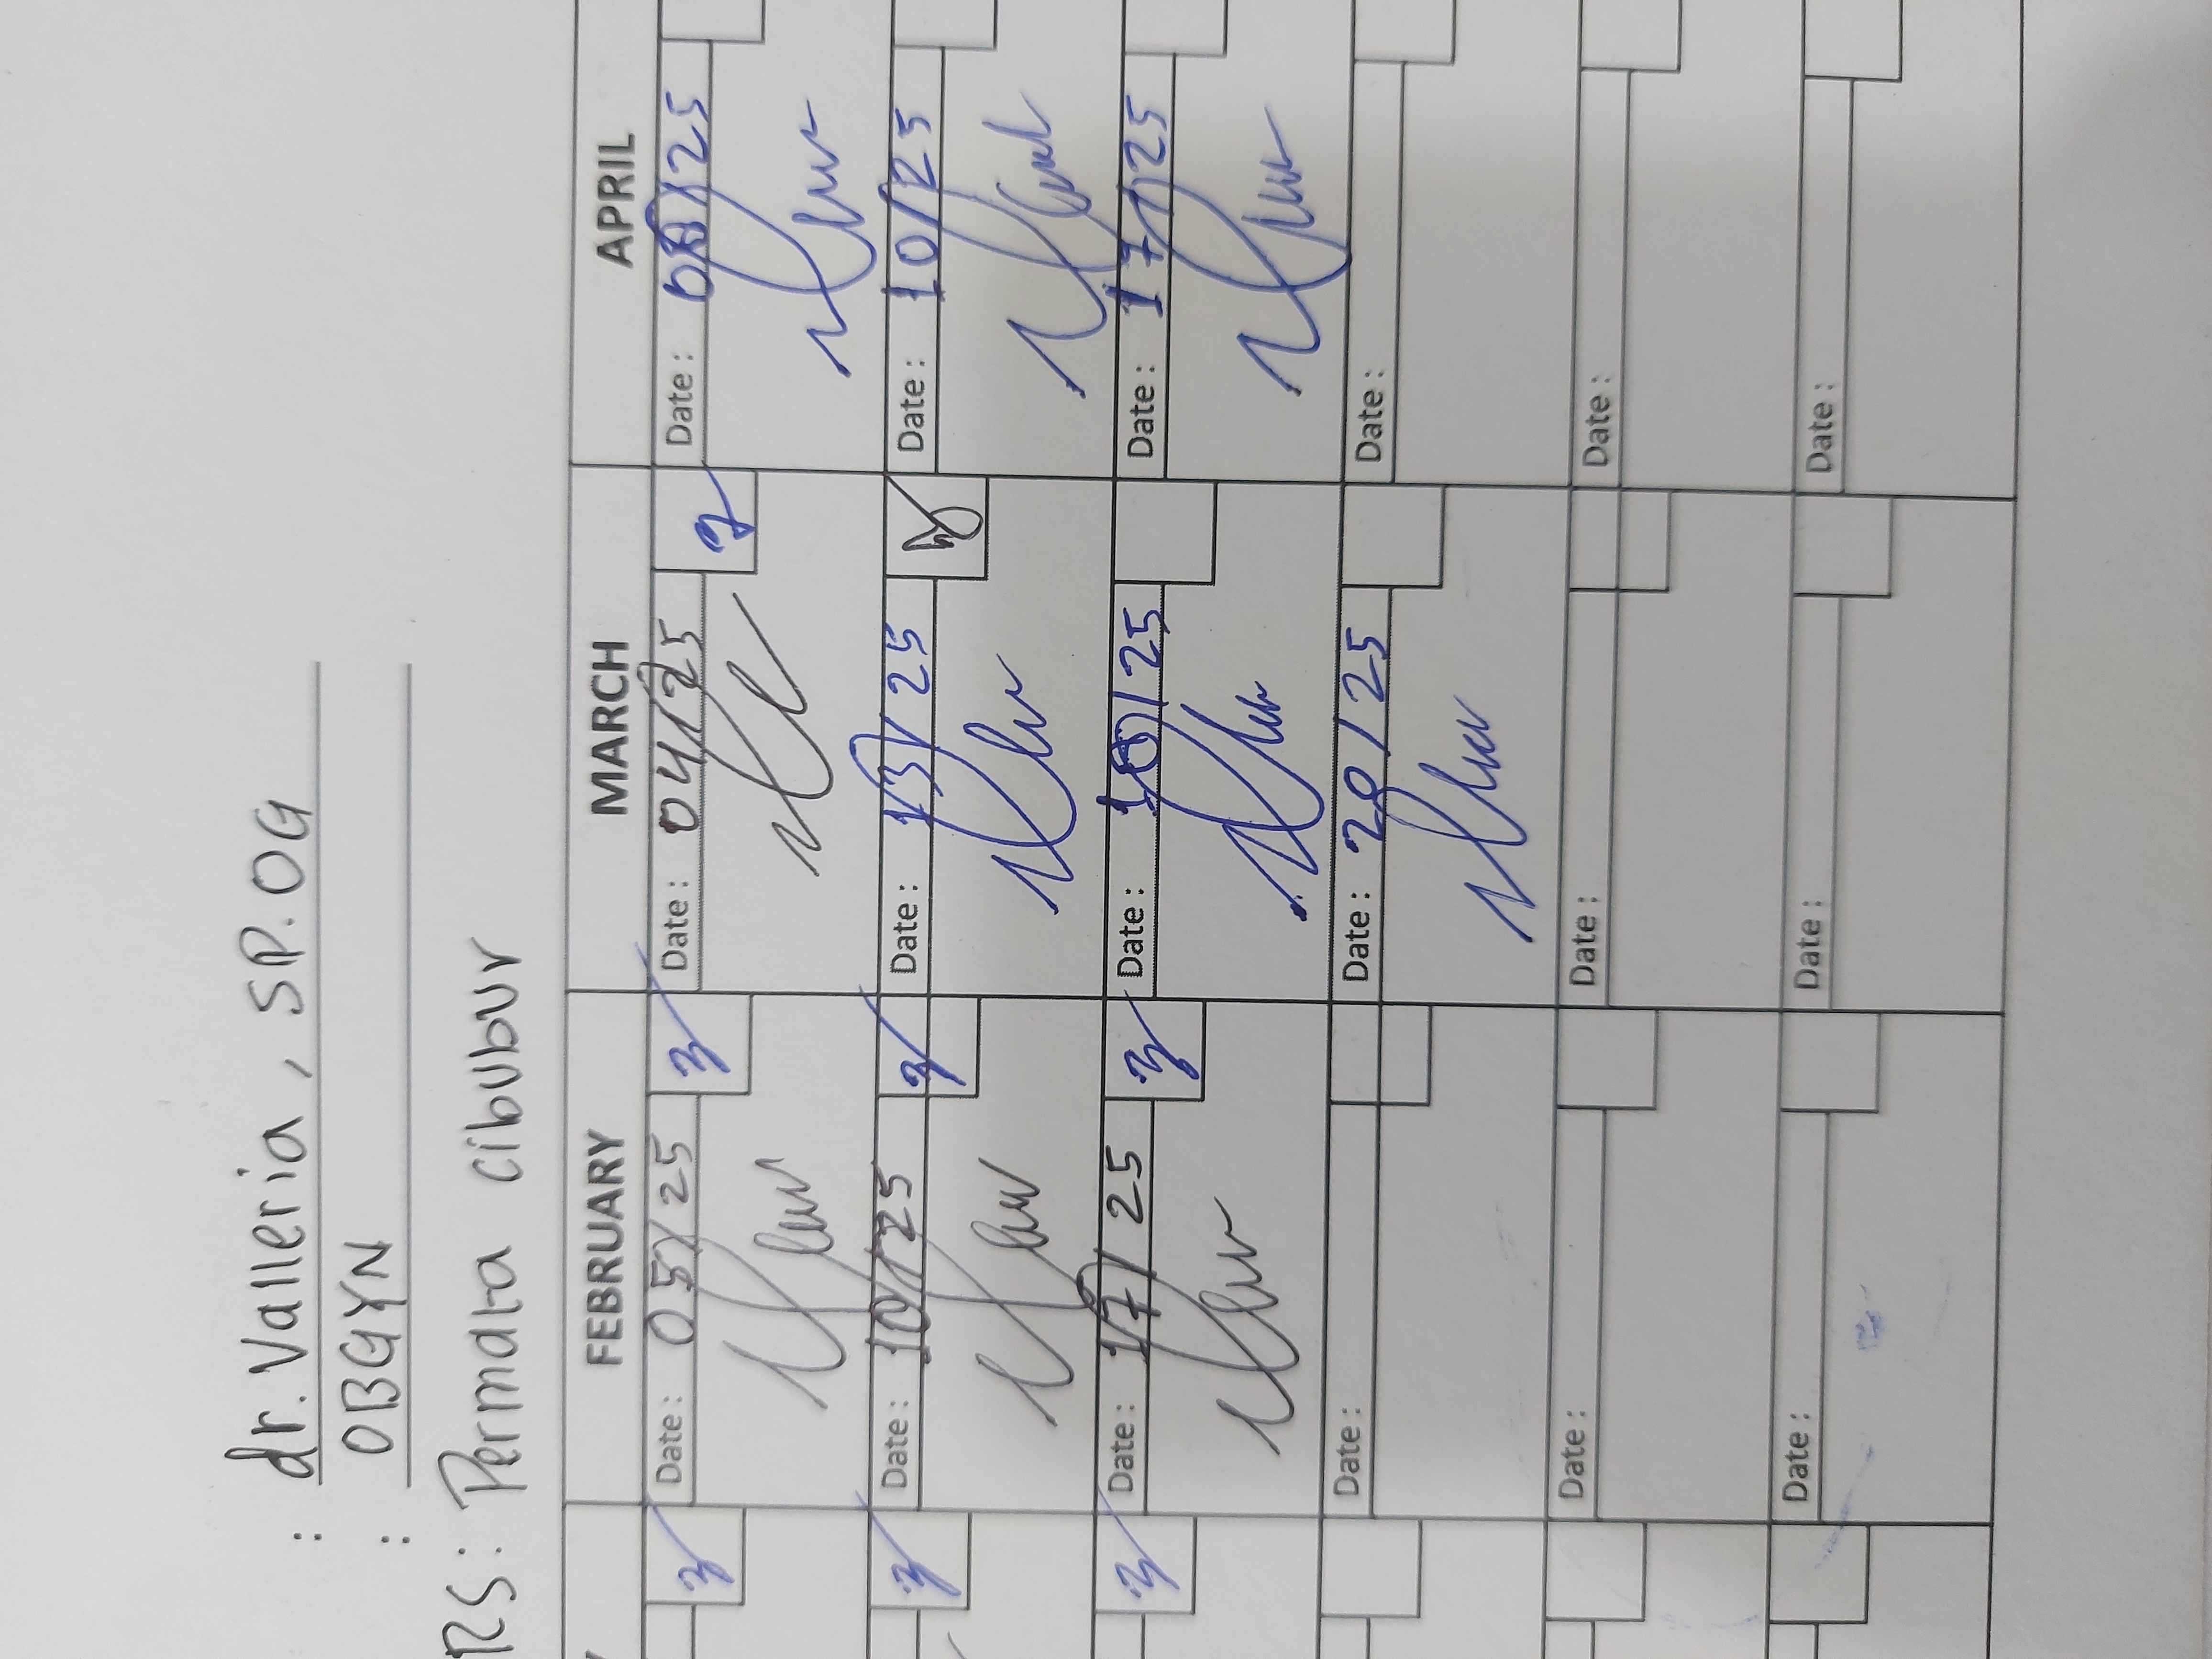 : dr. Valleria, SP.OG
: OBGYN
RS: Permata cibubur
FEBRUARY MARCH APRIL
Date: 05/25 Date: 04/25 Date: 08/25
Date: 10/25 Date: 13/25 Date: 10/25
Date: 17/25 Date: 18/25 Date: 17/25
Date: Date: 20/25 Date:
Date: Date: Date:
Date: Date: Date: